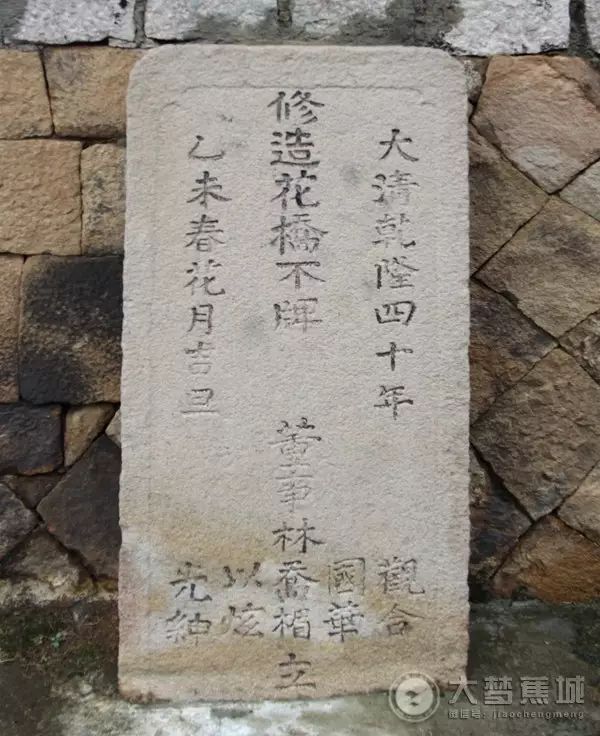 大清乾隆四十年
修造花橋不牌
乙未春花月吉旦
董事林
觀合
國華
喬楣
以炫
先紳
立
大梦蕉城
微信号: jiaochengmeng